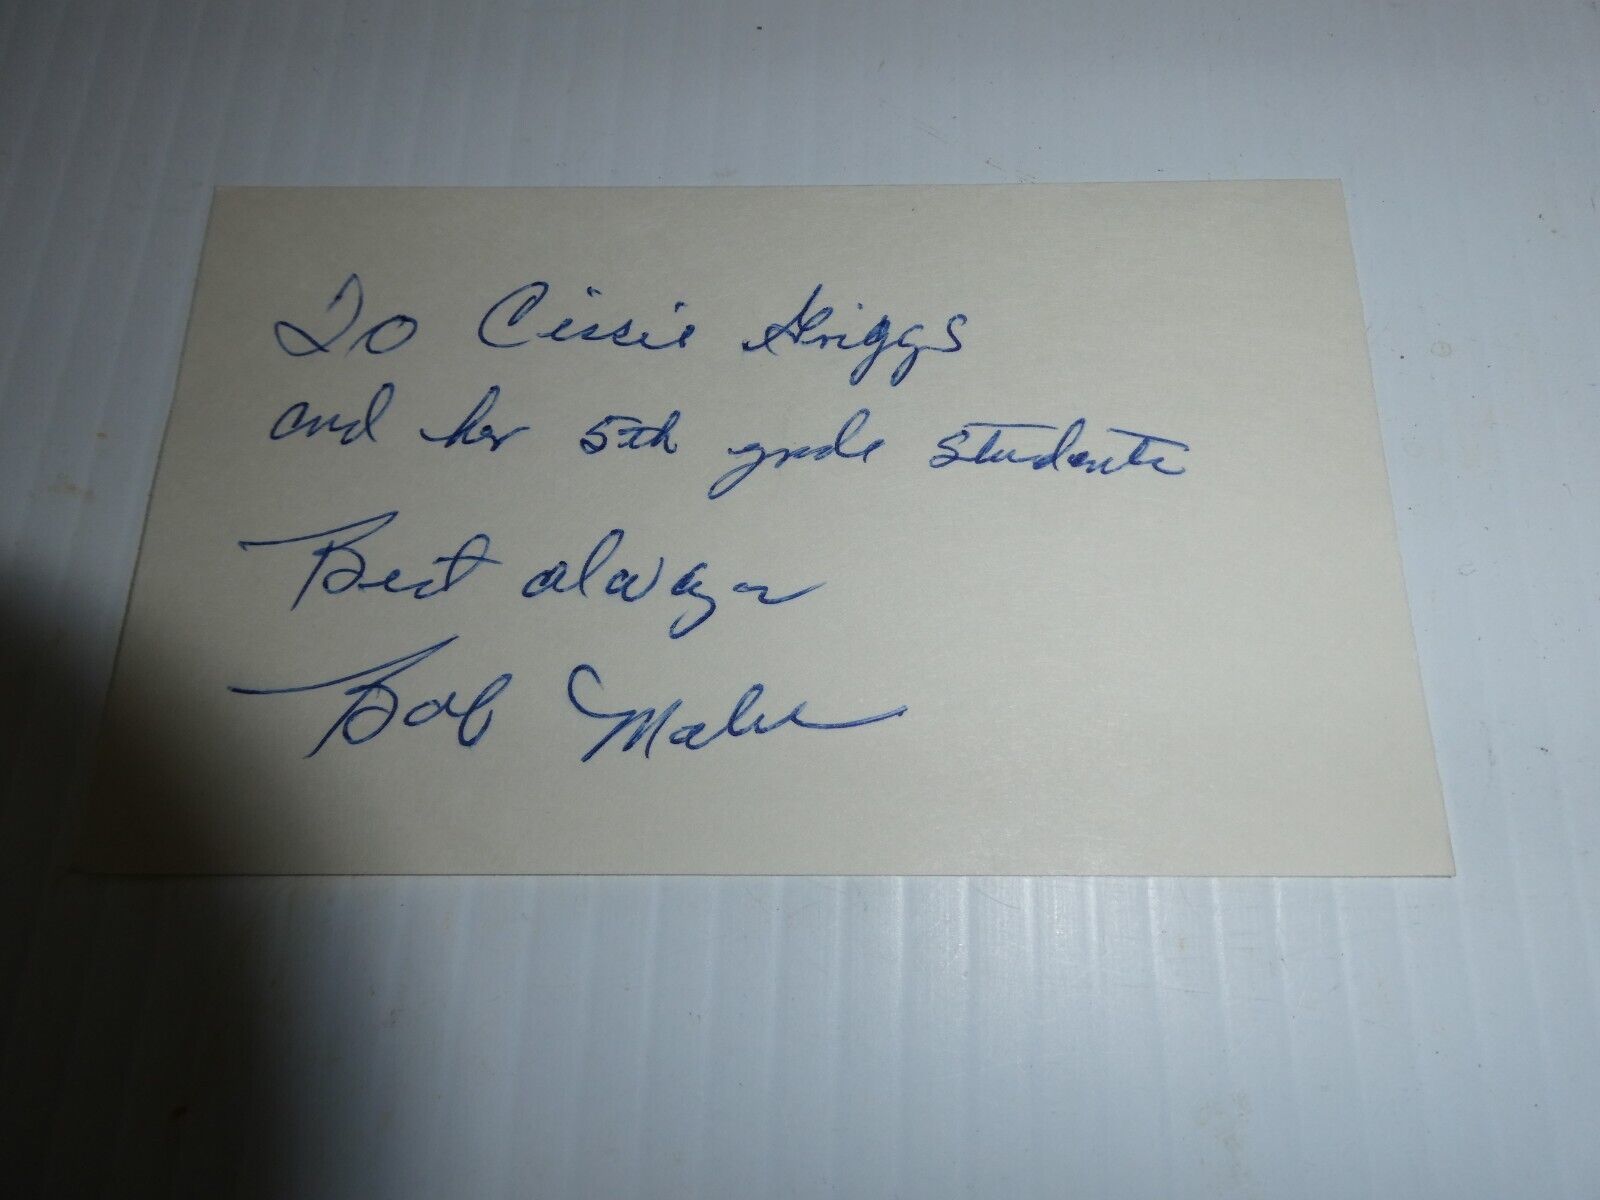 To Cissie Griggs
and her 5th grade students
Best always
Bob